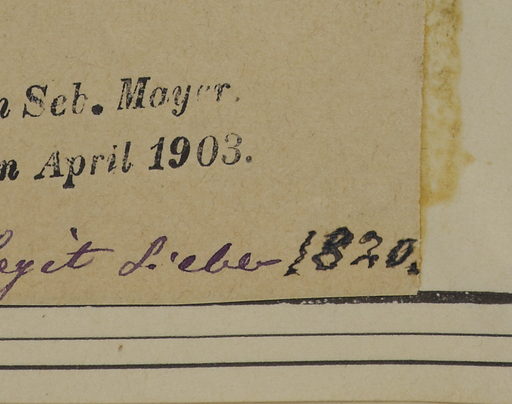 n Seb. Mayer.
n April 1903.
legit Lieber 1820.